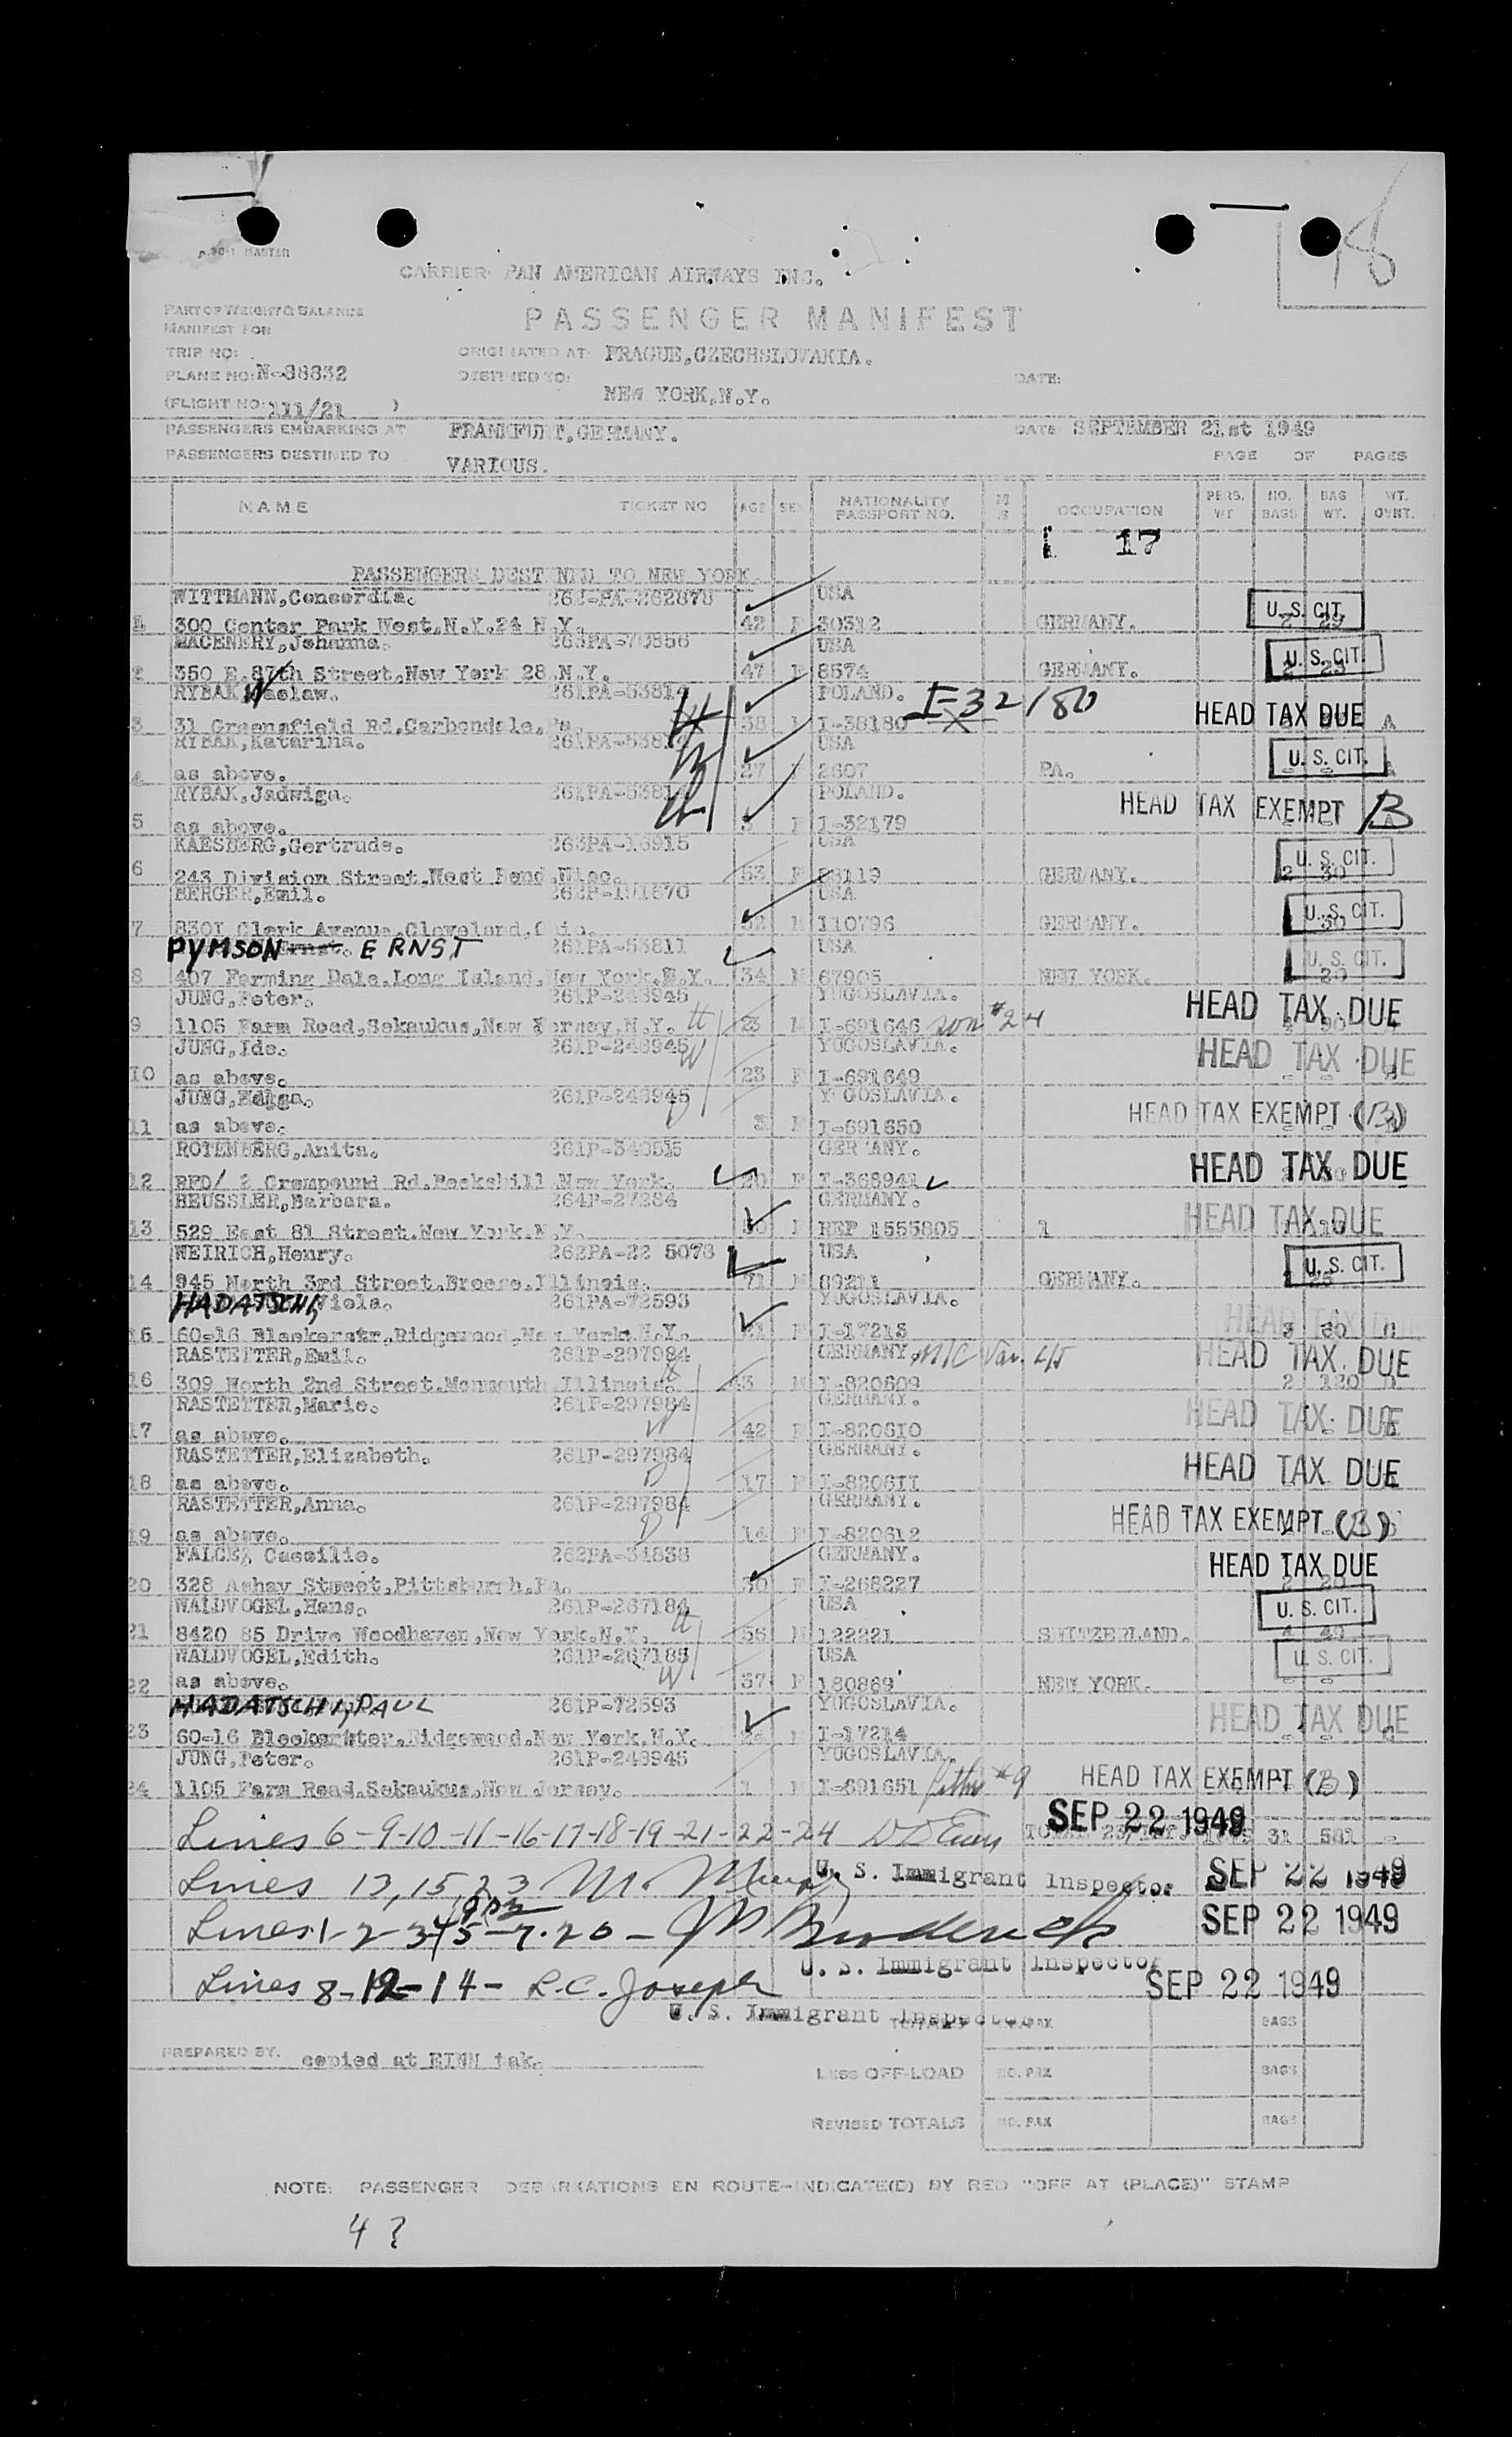 18
CARRIER PAN AMERICAN AIRWAYS INC.
PART OF WEIGHT & BALANCE
MANIFEST FOR
PASSENGER MANIFEST
TRIP NO:
ORIGINATED AT: PRAGUE,CZECHSLOVAKIA.
PLANE NO: N-88832
DESTINED TO: NEW YORK,N.Y.
DATE:
(FLIGHT NO: 111/21 )
PASSENGERS EMBARKING AT FRANKFURT,GERMANY.
DATE SEPTEMBER 21st 1949
PASSENGERS DESTINED TO VARIOUS.
PAGE OF PAGES
NAME TICKET NO AGE SEX NATIONALITY PASSPORT NO. OCCUPATION PERS. WT NO. BAGS BAG WT. WT. OVHT.
17
PASSENGERS DESTINED TO NEW YORK.
WITTMANN,Concordia. 262-PA-262878 USA
1 300 Center Park West.N.Y.24 N.Y. 42 F 30312 GERMANY. U. S. CIT. 2 29
MACENERY,Johanna. 263PA-70856 USA
2 350 E.87th Street,New York 28.N.Y. 47 F 8574 GERMANY. U. S. CIT. 2 23
RYBAK, Waslaw. 261PA-53814 POLAND. I-32180
3 31 Greensfield Rd.Carbondale,Pa. H 38 M I-38180 HEAD TAX DUE A
RYBAK,Katarina. 261PA-53814 USA
4 as above. W 27 F 2607 PA. U. S. CIT.
RYBAK,Jadwiga. 261PA-53814 POLAND.
5 as above. 3 F I-32179 HEAD TAX EXEMPT B
KAESBERG,Gertrude. 263PA-16915 USA
6 243 Division Street.West Bend.Wisc. 53 F 88119 GERMANY. U. S. CIT. 2 30
BERGER,Emil. USA
7 8301 Clark Avenue.Cleveland,Ohio. 52 M 110796 GERMANY. U. S. CIT. 30
PYMSON ERNST 261PA-53811 USA
8 407 Farming Dale.Long Island.New York.N.Y. 34 M 67905 NEW YORK. U. S. CIT. 20
JUNG,Peter. 261P-248945 YUGOSLAVIA.
9 1105 Farm Road,Sekaukus,New Jersey,N.Y. H 23 M I-691646 son #24 HEAD TAX DUE
JUNG,Ida. 261P-248945 YUGOSLAVIA.
10 as above. W 23 F I-691649 HEAD TAX DUE
JUNG,Helga. 261P-248945 YUGOSLAVIA.
11 as above. D 3 F I-691650 HEAD TAX EXEMPT (B)
ROTENBERG,Anita. 261P-340515 GERMANY.
12 RFD/ 2 Crompound Rd.Peekskill New York. 20 F I-368941 HEAD TAX DUE
BEUSSLER,Barbara. 264P-27284 GERMANY.
13 529 East 81 Street.New York.N.Y. F REF 1555805 1 HEAD TAX DUE
WEIRICH,Henry. 262PA-22 5078 USA
14 945 North 3rd Street.Breese.Illinois. 71 M 89211 GERMANY. U. S. CIT. 25
HADATSCHI, Viola. 261PA-72593 YUGOSLAVIA.
15 60-16 Bleekerstr,Ridgewood,New York.N.Y. 21 F I-17213 HEAD TAX DUE 3 60
RASTETTER,Emil. 261P-297984 GERMANY.
16 309 North 2nd Street.Monmouth Illinois. H 43 M I-820609 HEAD TAX DUE 2 120
RASTETTER,Marie. 261P-297984 GERMANY.
17 as above. W 42 F I-820610 HEAD TAX DUE
RASTETTER,Elizabeth. 261P-297984 GERMANY.
18 as above. D 17 F I-820611 HEAD TAX DUE
RASTETTER,Anna. 261P-297984 GERMANY.
19 as above. D 14 F I-820612 HEAD TAX EXEMPT (B)
FALCE, Cassilie. 262PA-34838 GERMANY.
20 328 Ashay Street,Pittsburgh.Pa. 30 F I-268227 HEAD TAX DUE
WALDVOGEL,Hans. 261P-267184 USA
21 8420 85 Drive Woodhaven,New York.N.Y. H 56 M 122221 SWITZERLAND. U. S. CIT.
WALDVOGEL,Edith. 261P-267185 USA
22 as above. W 37 F 180869 NEW YORK. U. S. CIT.
HADATSCHI, PAUL 261P-72593 YUGOSLAVIA.
23 60-16 Bleekerster.Ridgewood.New York.N.Y. 26 M I-17214 HEAD TAX DUE
JUNG,Peter. 261P-248945 YUGOSLAVIA.
24 1105 Farm Road.Sekaukus,New Jersey. 1 M I-691651 father #9 HEAD TAX EXEMPT (B)
Lines 6-9-10-11-16-17-18-19-21-22-24 SEP 22 1949 31 581
Lines 13,15,23 U. S. Immigrant Inspector SEP 22 1949
Lines 1-2-3-4-5-7-20 SEP 22 1949
U. S. Immigrant Inspector
Lines 8-12-14- R.C. Joseph SEP 22 1949
U. S. Immigrant Inspector
PREPARED BY. copied at EINN
BAGS
LESS OFF-LOAD NO. PAX BAGS
REVISED TOTALS NO. PAX BAGS
NOTE: PASSENGER DEBARKATIONS EN ROUTE-INDICATE(D) BY RED "OFF AT (PLACE)" STAMP
4 ?